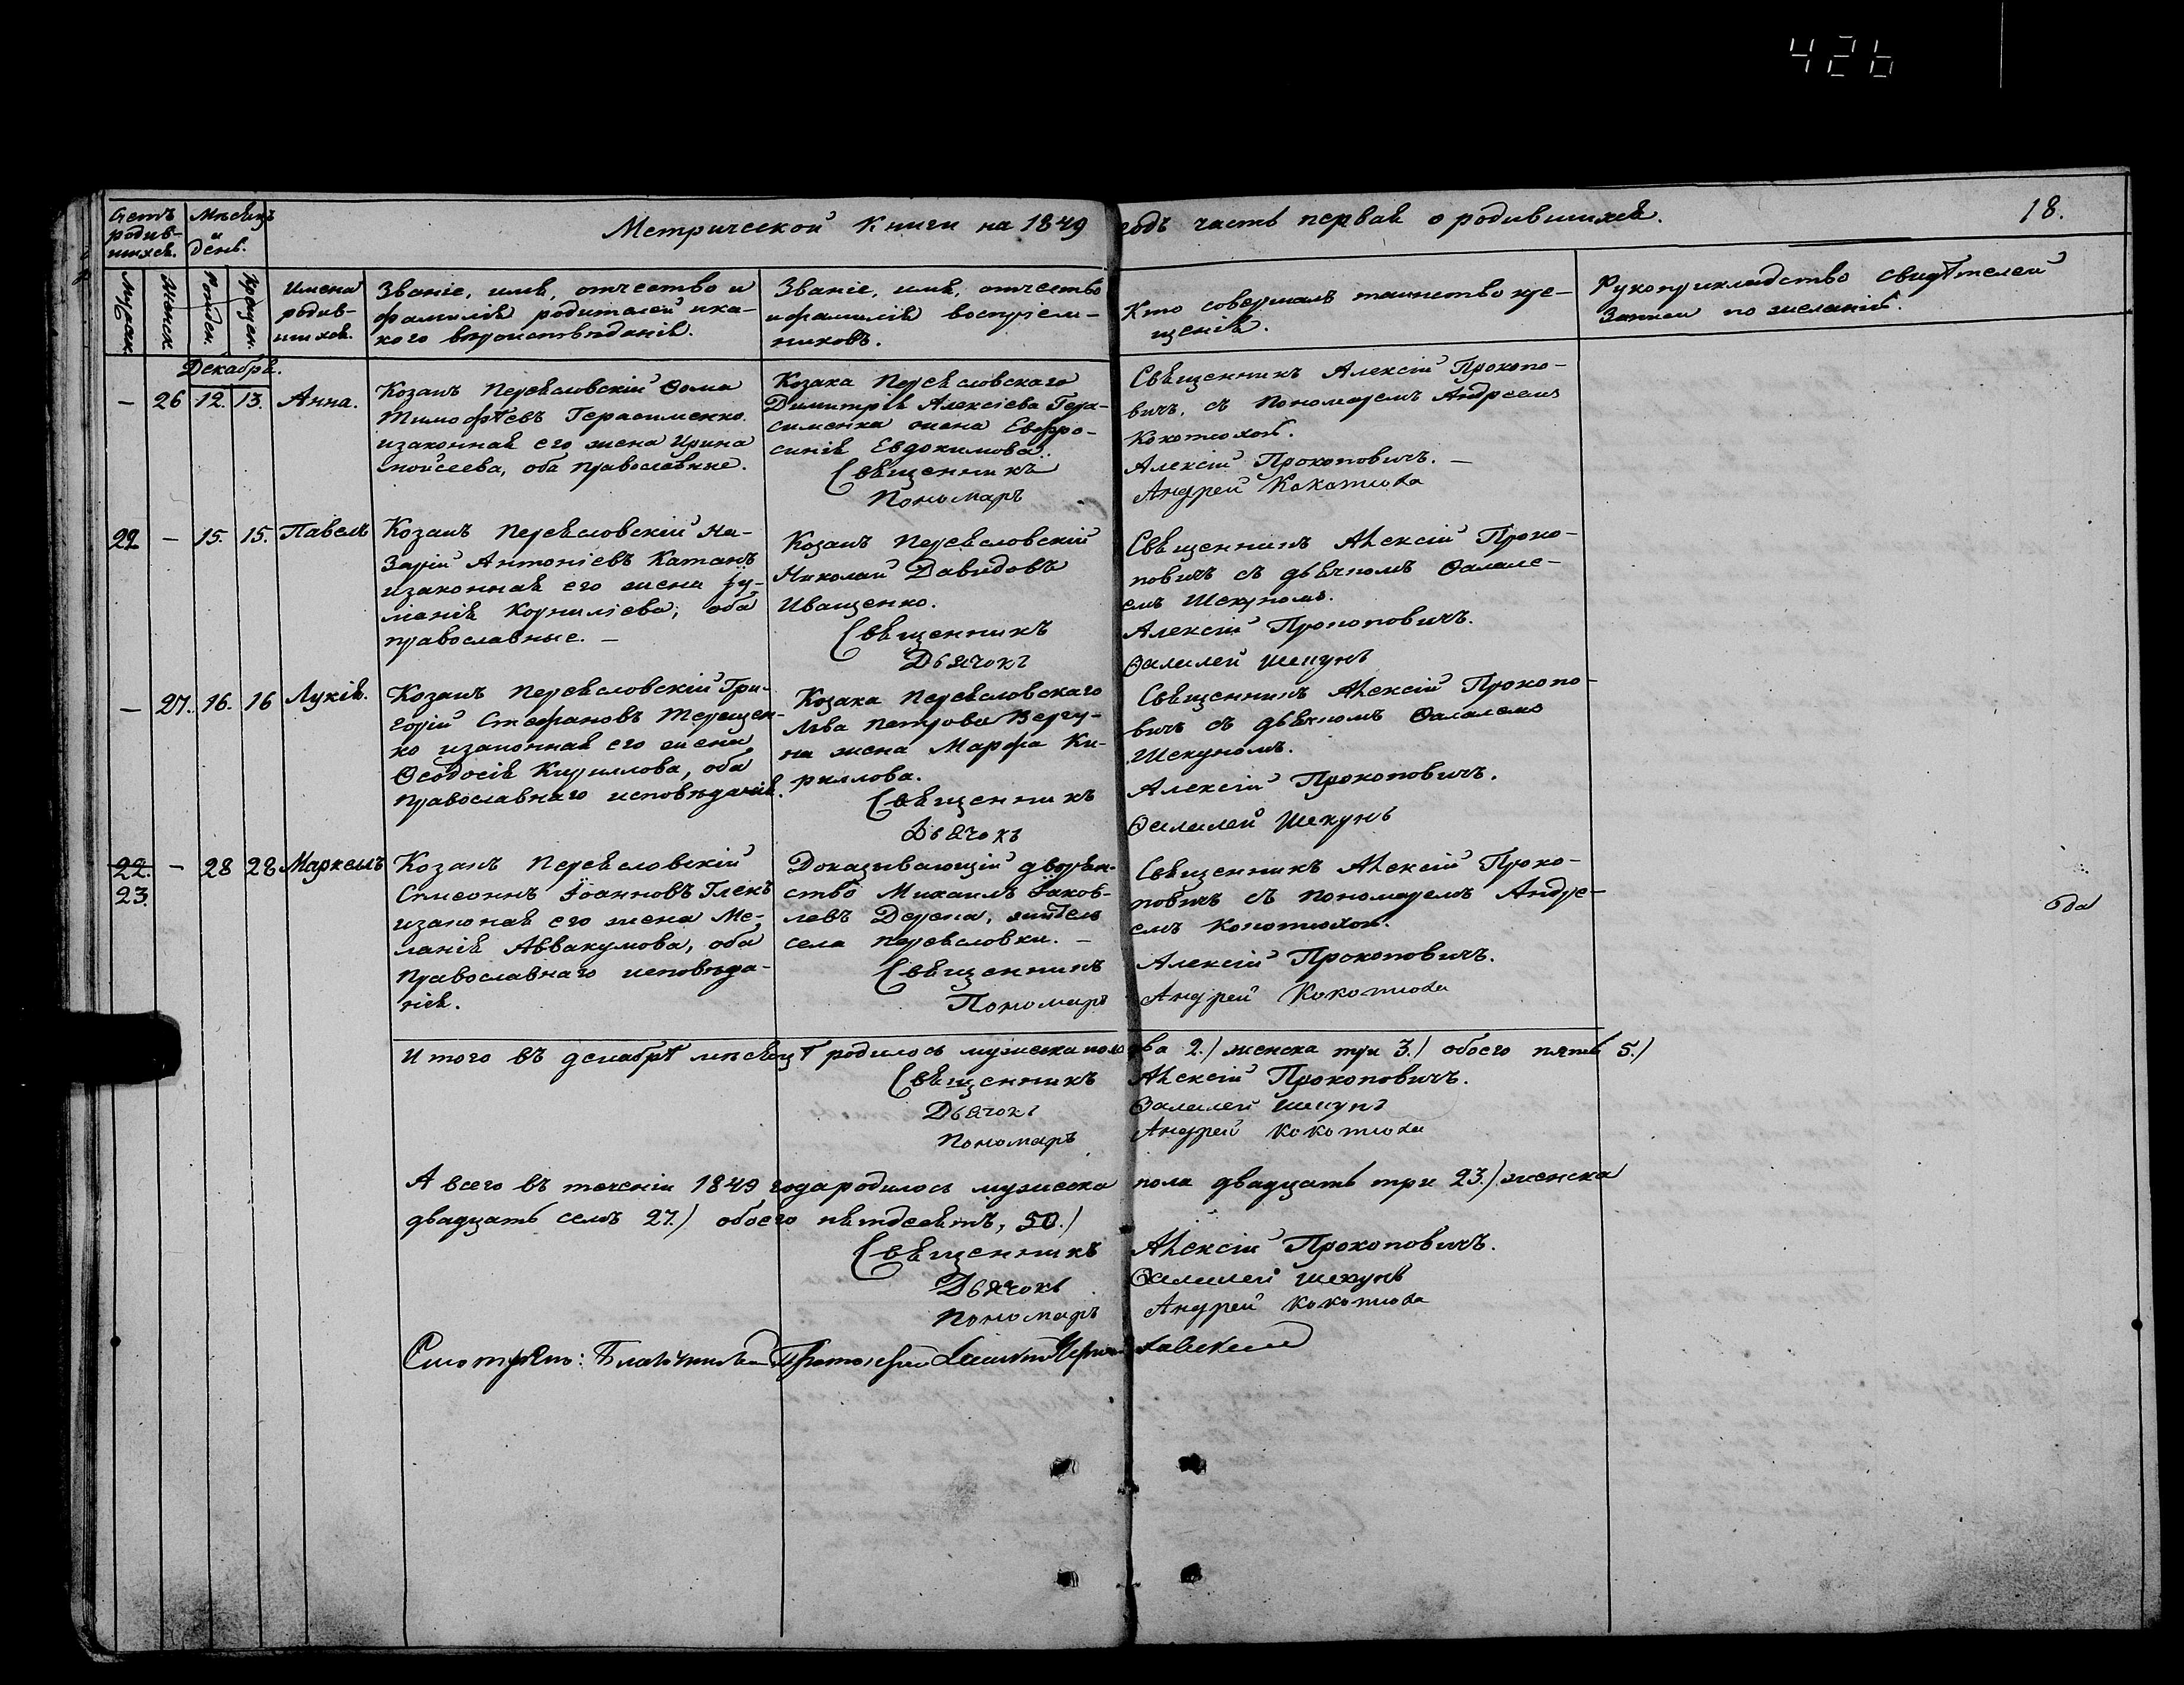 426
18.
Метрической Книги на 1849 годъ часть первая о родившихся.
Счетъ
родив-
шихся.
Мѣсяцъ
и
день.
Мужеск.
Женск.
Рожден.
Крещен.
Имена
родив-
шихся.
Званіе, имя, отчество и
фамилія родителей и ка-
кого вѣроисповѣданія.
Званіе, имя, отчество
и фамилія воспріем-
никовъ.
Кто совершалъ таинство кре-
щенія.
Рукоприкладство свидѣтелей
Записи по желанію.
Декабрь.
— 26 12. 13. Анна.
Козакъ Переясловскій Ѳома
Тимофѣевъ Герасименко
изаконная его жена Ирина
Моисеева, оба православные.
Козака Переясловскаго
Димитрія Алексіева Гера-
сименка жена Евфро-
синія Евдокимова.
Священникъ
Пономарь
Священникъ Алексій Прокопо-
вичъ, съ Пономаремъ Андреемъ
Кокотюхой.
Алексій Прокоповичъ. —
Андрей Кокотюха
22 — 15. 15. Павелъ
Козакъ Переясловскій На-
зарій Антоніевъ Катанъ
изаконная его жена Іу-
ліанія Корниліева, оба
православные. —
Козакъ Переясловскій
Николай Давидовъ
Иващенко.
Священникъ
Дьячокъ
Священникъ Алексій Проко-
повичъ съ дьячкомъ Ѳалале-
емъ Шекуномъ.
Алексій Прокоповичъ.
Ѳалилей Шекунъ
— 27. 16. 16 Лукія.
Козакъ Переясловскій Гри-
горій Стефановъ Терещен-
ко изаконная его жена
Ѳеодосія Кириллова, оба
православнаго исповѣданія.
Козака Переясловскаго
Льва Петрова Вергу-
на жена Марфа Ки-
риллова.
Священникъ
Дьячокъ
Священникъ Алексій Прокопо-
вичъ съ дьячкомъ Ѳалалеемъ
Шекуномъ.
Алексій Прокоповичъ.
Ѳалилей Шекунъ
22. — 28 28 Маркелъ
23.
Козакъ Переясловскій
Симеонъ Іоанновъ Глекъ
изаконая его жена Ме-
ланія Аввакумова, оба
православнаго исповѣда-
нія.
Доказывающій дворян-
ство Михаилъ Іаков-
левъ Дерека, житель
села Переясловки. —
Священникъ
Пономарь
Священникъ Алексій Проко-
повичъ съ пономаремъ Андре-
емъ Кокотюхой.
Алексій Прокоповичъ.
Андрей Кокотюха
Итого въ декабрѣ мѣсяцѣ родилось мужеска пола два 2.) женска три 3.) обоего пять 5.)
Священникъ Алексій Прокоповичъ.
Дьячокъ Ѳалилей Шекунъ
Пономарь Андрей Кокотюха
А всего въ теченіи 1849 года родилось мужеска пола двадцать три 23.) женска
двадцать семъ 27.) обоего пятдесятъ, 50.)
Священникъ Алексій Прокоповичъ.
Дьячокъ Ѳалилей Шекунъ
Пономарь Андрей Кокотюха
Смотрѣлъ: Благочинный Протоіерей